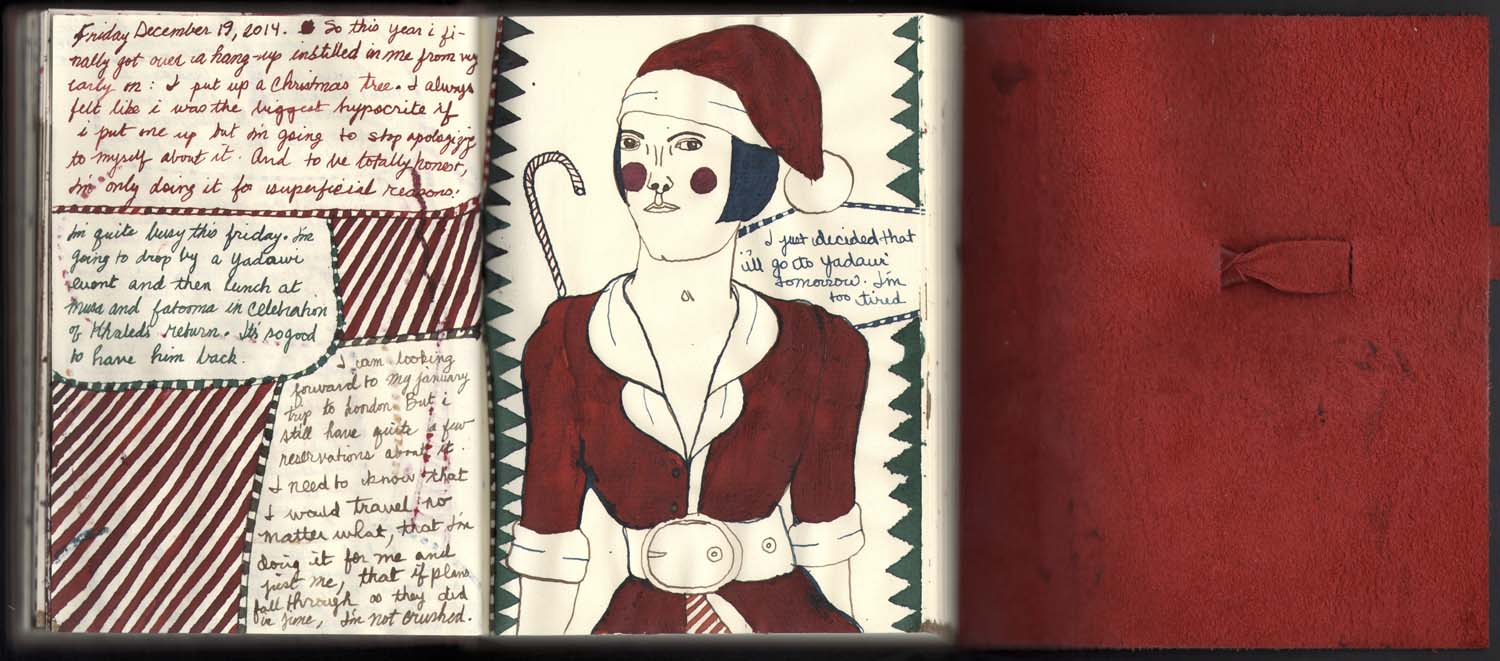 Friday December 19, 2014. So this year i fi-
nally got over a hang-up instilled in me from my
early on : I put up a Christmas tree. I always
felt like i was the biggest hypocrite if
i put one up but i'm going to stop apologizing
to myself about it. And to be totally honest,
I'm only doing it for superficial reasons.
I'm quite busy this friday. I'm
going to drop by a yadawi
event and then lunch at
musa and fatooma in celebration
of Khaled's return. It's so good
to have him back.
I am looking
forward to my january
trip to London. But i
still have quite a few
reservations about it.
I need to know that
I would travel no
matter what, that I'm
doing it for me and
just me, that if plans
fall through as they did
in june, I'm not crushed.
I just decided that
i'll go to yadawi
tomorrow. I'm
too tired